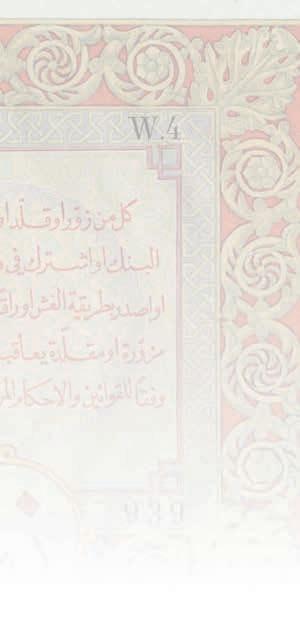 W.4
كل من زوّر او قلّد او
البنك او اشترك في
او اصدر بطريقة الغش اوراق
مزوّرة او مقلّدة يعاقب
وفقًا للقوانين والاحكام المر
939